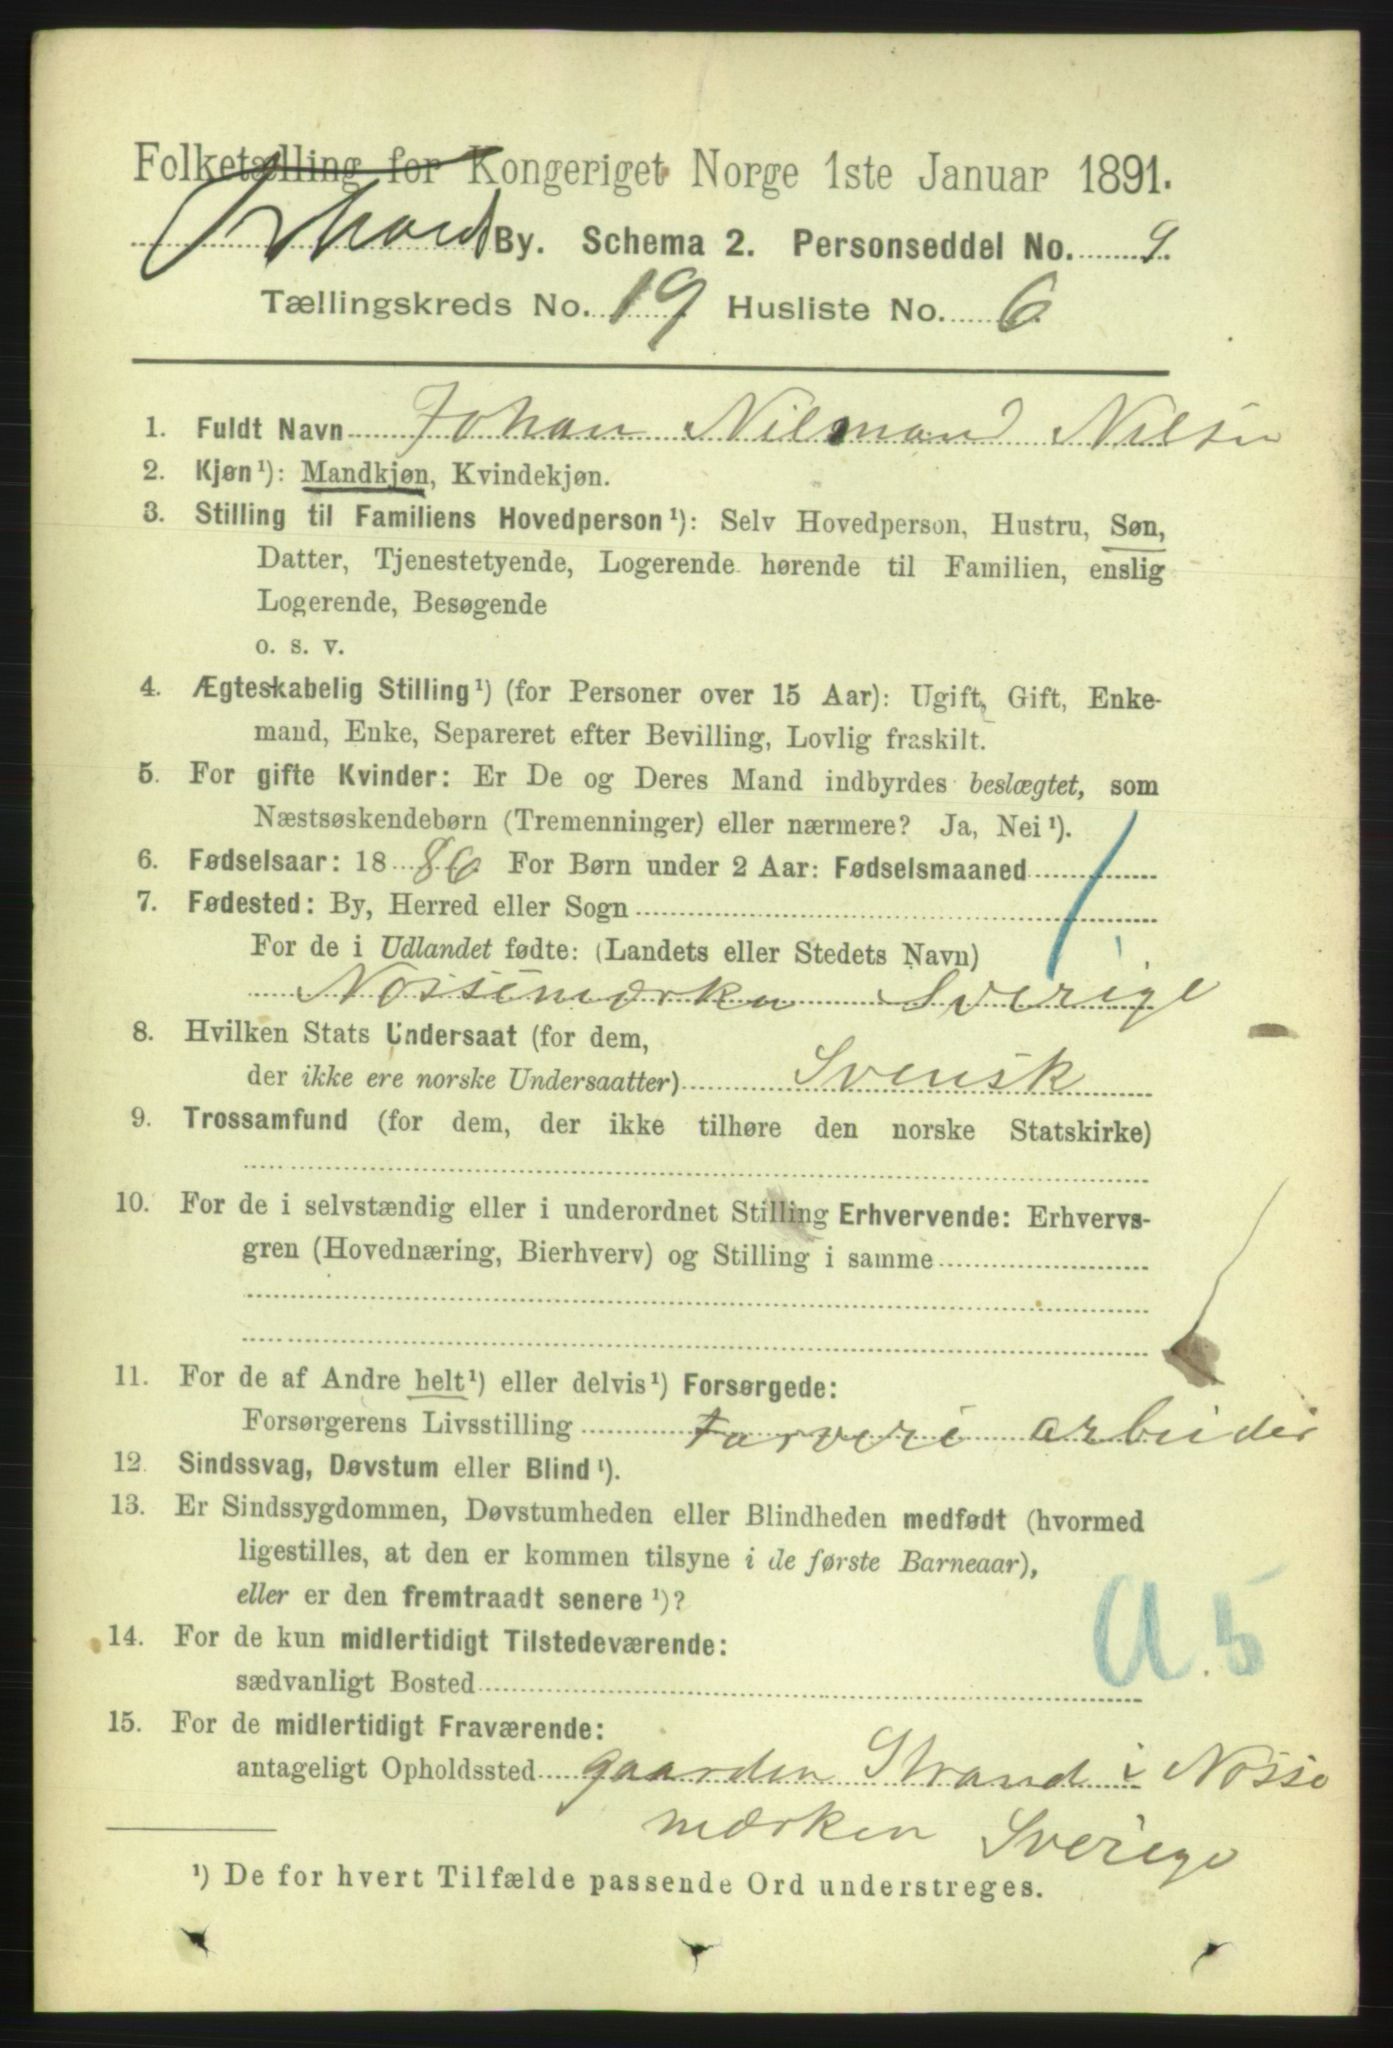 Folketælling for Kongeriget Norge 1ste Januar 1891.
By. Schema 2. Personseddel No. 9.
Tællingskreds No. 19 Husliste No. 6
1. Fuldt Navn Johan Nilmand Nilsen
2. Kjøn¹): Mandkjøn, Kvindekjøn.
3. Stilling til Familiens Hovedperson¹): Selv Hovedperson, Hustru, Søn,
Datter, Tjenestetyende, Logerende hørende til Familien, enslig
Logerende, Besøgende
o. s. v.
4. Ægteskabelig Stilling¹) (for Personer over 15 Aar): Ugift, Gift, Enke-
mand, Enke, Separeret efter Bevilling, Lovlig fraskilt.
5. For gifte Kvinder: Er De og Deres Mand indbyrdes beslægtet, som
Næstsøskendebørn (Tremenninger) eller nærmere? Ja, Nei¹).
6. Fødselsaar: 1886 For Børn under 2 Aar: Fødselsmaaned
7. Fødested: By, Herred eller Sogn
For de i Udlandet fødte: (Landets eller Stedets Navn)
Nössemærken Sverige
8. Hvilken Stats Undersaat (for dem,
der ikke ere norske Undersaatter) Svensk
9. Trossamfund (for dem, der ikke tilhøre den norske Statskirke)
10. For de i selvstændig eller i underordnet Stilling Erhvervende: Erhvervs-
gren (Hovednæring, Bierhverv) og Stilling i samme
11. For de af Andre helt¹) eller delvis¹) Forsørgede:
Forsørgerens Livsstilling Farveri arbeider
12. Sindssvag, Døvstum eller Blind¹).
13. Er Sindssygdommen, Døvstumheden eller Blindheden medfødt (hvormed
ligestilles, at den er kommen tilsyne i de første Barneaar),
eller er den fremtraadt senere¹)?
14. For de kun midlertidigt Tilstedeværende:
sædvanligt Bosted
a.5
15. For de midlertidigt Fraværende:
antageligt Opholdssted gaarden Strand i Nösse
mærken Sverige
¹) De for hvert Tilfælde passende Ord understreges.